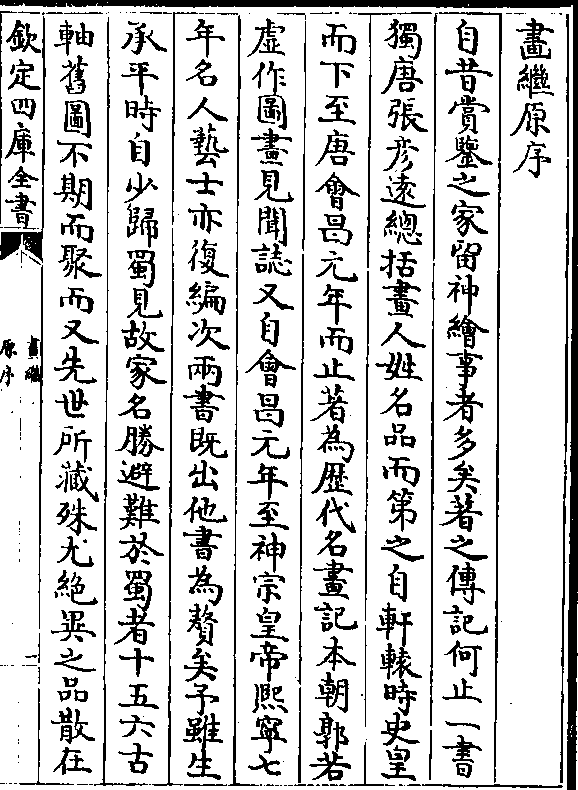 畫繼原序
自昔賞鑒之家留神繪事者多矣著之傳記何止一書
獨唐張彥遠總括畫人姓名品而第之自軒轅時史皇
而下至唐會昌元年而止著為歷代名畫記本朝郭若
虛作圖畫見聞誌又自會昌元年至神宗皇帝熙寧七
年名人藝士亦復編次兩書既出他書為贅矣予雖生
承平時自少歸蜀見故家名勝避難於蜀者十五六古
軸舊圖不期而聚而又先世所藏殊尤絕異之品散在
欽定四庫全書
畫繼
原序
一